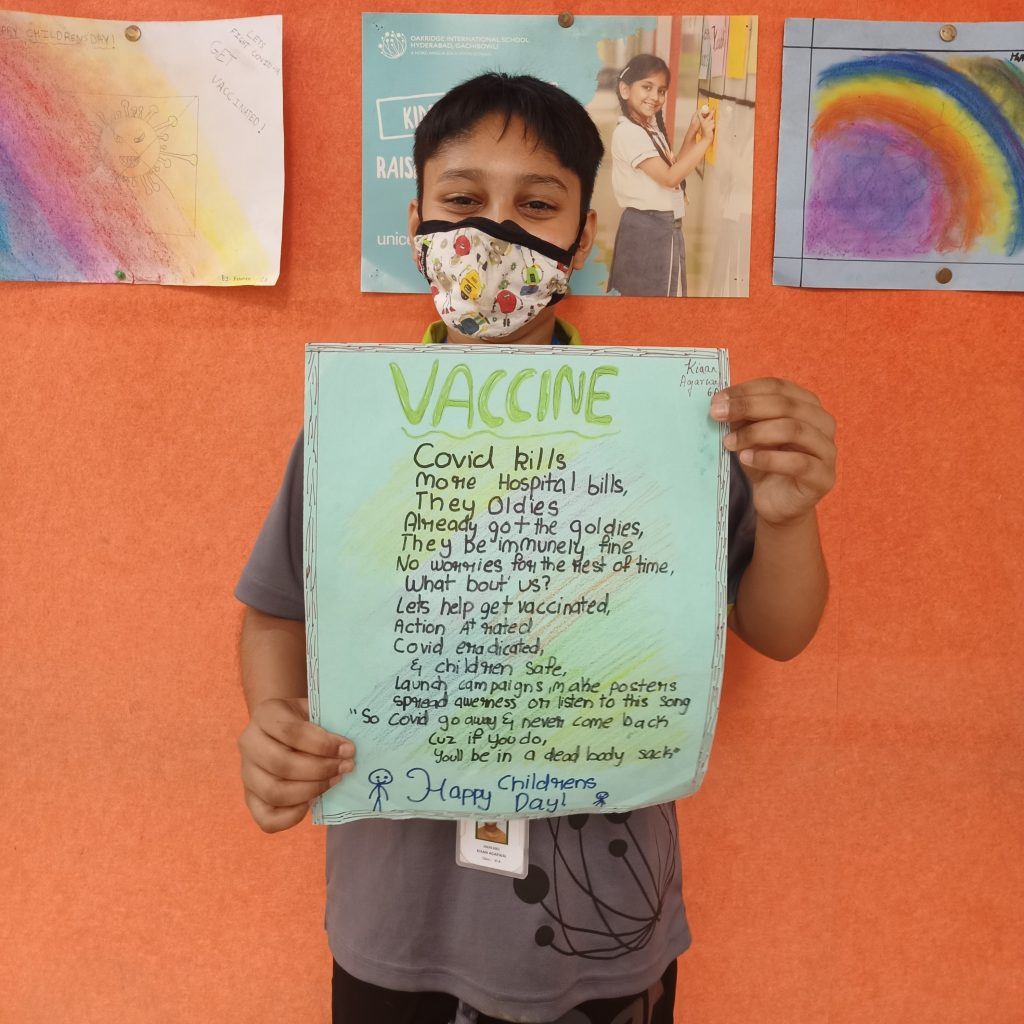 HAPPY CHILDRENS DAY!
LETS
FIGHT COVID-19
GET
VACCINATED!
OAKRIDGE INTERNATIONAL SCHOOL
HYDERABAD, GACHIBOWLI
KID
RAIS
unic
VACCINE
Kiaan
Agarwal
6A
Covid kills
More Hospital bills,
They Oldies
Already got the goldies,
They be immunely fine
No worries for the rest of time,
What bout' us?
Lets help get vaccinated,
Action At rated
Covid eradicated,
& children safe,
Launch campaigns, make posters
spread awerness or listen to this song
"So Covid go away & never come back
Cuz if you do,
Youll be in a dead body sack"
Happy Childrens
Day!
KIAAN AGARWAL